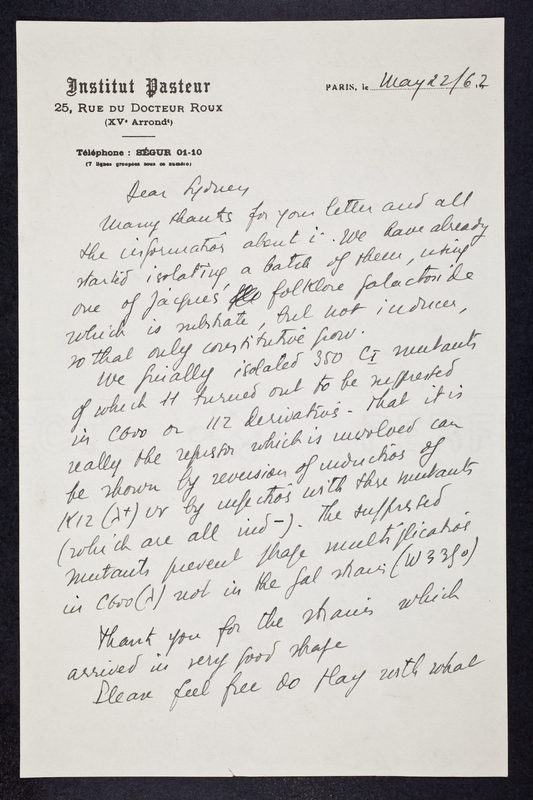 Institut Pasteur
25, RUE DU DOCTEUR ROUX
(XVe Arrondt)
Téléphone : SÉGUR 01-10
(7 lignes groupées sous ce numéro)
PARIS, le May 22/62
Dear Sydney
Many thanks for your letter and all
the information about i-. We have already
started isolating a batch of them, using
one of Jacques' folklore galactoside
which is substrate, but not inducer,
so that only constitutive grow.
We finally isolated 350 CI mutants
of which 11 turned out to be suppressed
in C600 or 112 derivatives - That it is
really the repressor which is involved can
be shown by reversion of induction of
K12 (λ+) or by infection with three mutants
(which are all ind-). The suppressed
mutants prevent phage multiplication
in C600(λ) not in the gal strain (W3350)
Thank you for the strains which
arrived in very good shape
Please feel free to play with what